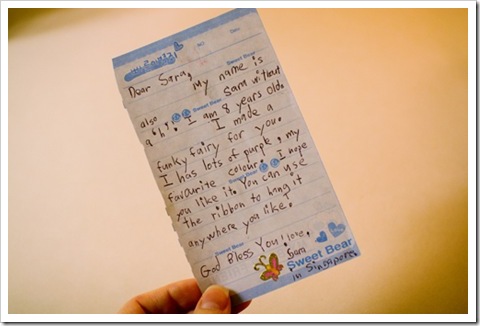 No: Date:
Sweet Bear
Dear Sara,
My name is
also Sara without
Sweet Bear
a "h". I am 8 years old.
I made a
funky fairy for you.
I has lots of purple, my
favourite colour. I hope
you like it. You can use
the ribbon to hang it
anywhere you like.
Sweet Bear
God Bless You! love,
Sara
Sweet Bear
in Singapore